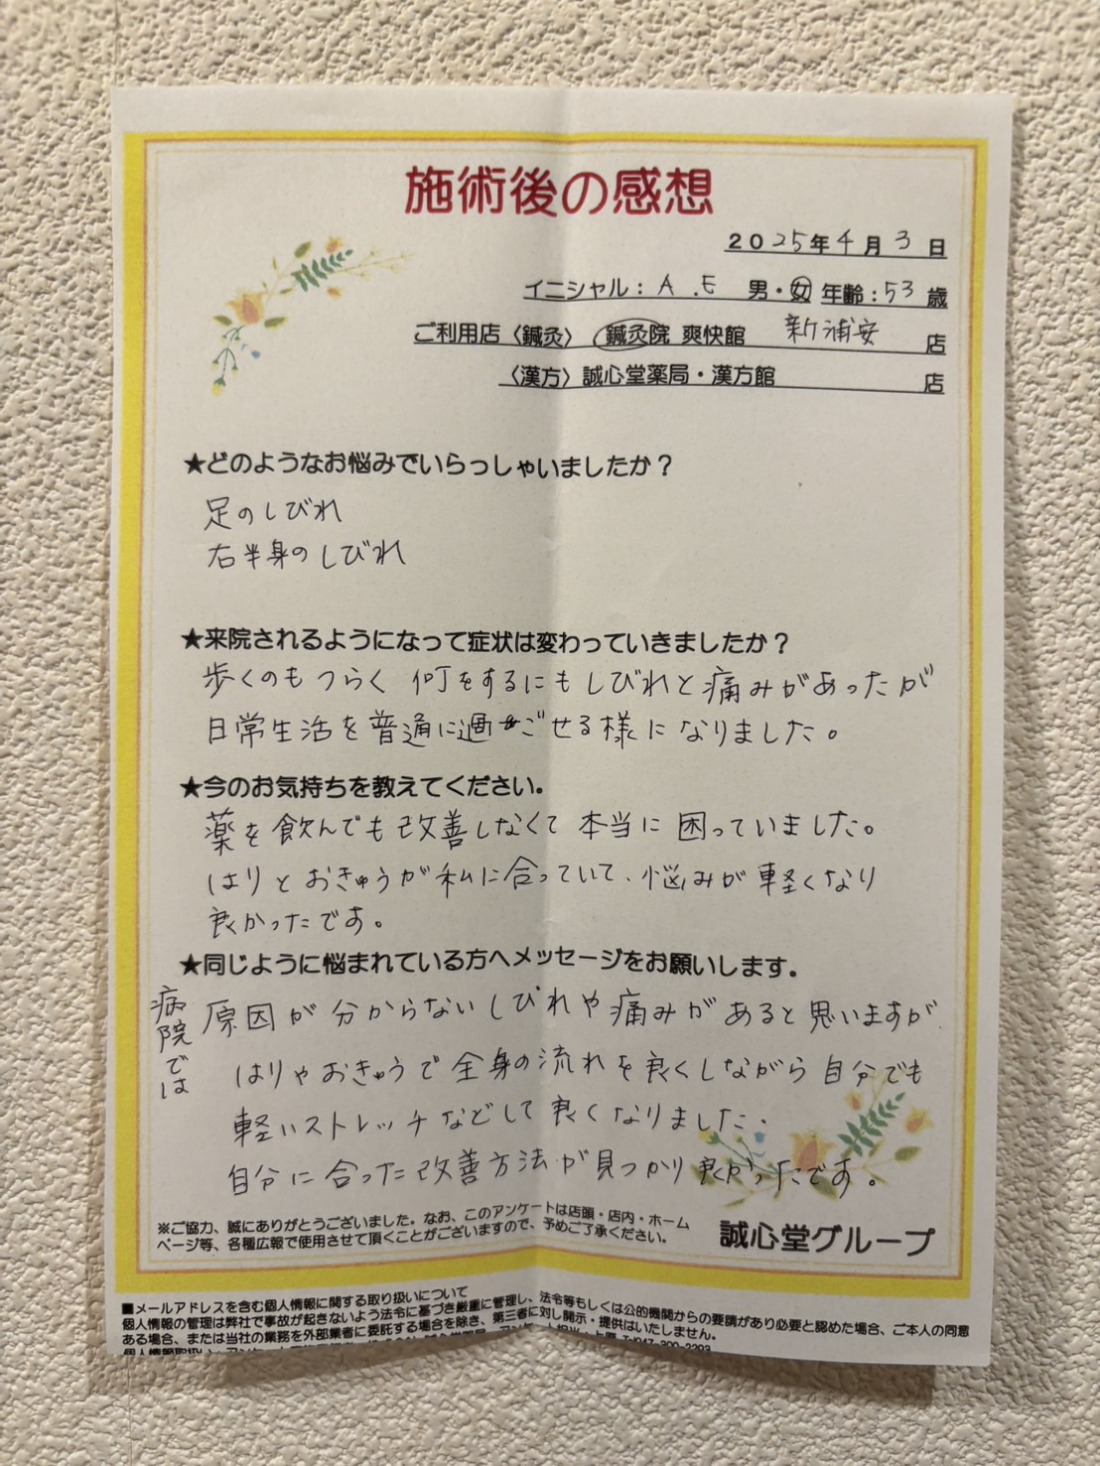 施術後の感想
2025年4月3日
イニシャル：A.E 男・女 年齢：53歳
ご利用店〈鍼灸〉 鍼灸院 爽快館 新浦安 店
〈漢方〉誠心堂薬局・漢方館 店
★どのようなお悩みでいらっしゃいましたか？
足のしびれ
右半身のしびれ
★来院されるようになって症状は変わっていきましたか？
歩くのもつらく 何をするにもしびれと痛みがあったが
日常生活を普通に過ごせる様になりました。
★今のお気持ちを教えてください。
薬を飲んでも改善しなくて本当に困っていました。
はりとおきゅうが私に合っていて、悩みが軽くなり
良かったです。
★同じように悩まれている方へメッセージをお願いします。
病院では
原因が分からないしびれや痛みがあると思いますが
はりやおきゅうで全身の流れを良くしながら自分でも
軽いストレッチなどして良くなりました.
自分に合った改善方法が見つかり良かったです。
※ご協力、誠にありがとうございました。なお、このアンケートは店頭・店内・ホーム
ページ等、各種広報で使用させて頂くことがございますので、予めご了承ください。
誠心堂グループ
■メールアドレスを含む個人情報に関する取り扱いについて
個人情報の管理は弊社で事故が起きないよう法令に基づき厳重に管理し、法令等もしくは公的機関からの要請があり必要と認めた場合、ご本人の同意
ある場合、または当社の業務を外部業者に委託する場合を除き、第三者に対し開示・提供はいたしません。